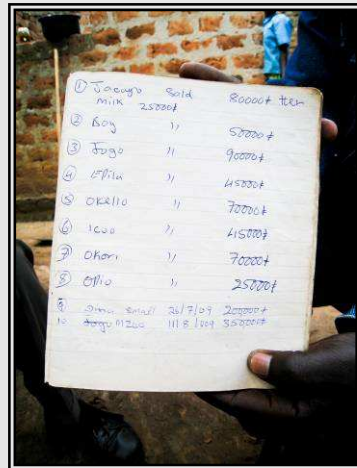 ① Jacugo Sold 80000⧧ ten
milk 25000⧧
② Boy ,, 50000⧧
③ Jogo ,, 90000⧧
④ ,, 45000⧧
⑤ Okello ,, 70000⧧
⑥ Icuo ,, 45000⧧
⑦ Okori ,, 70000⧧
⑧ Opio ,, 25000⧧
⑨ small 25/7/09 200000⧧
10 MZee 11/8/009 350000⧧